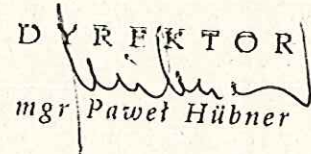 D Y R E K T O R
mgr Paweł Hübner